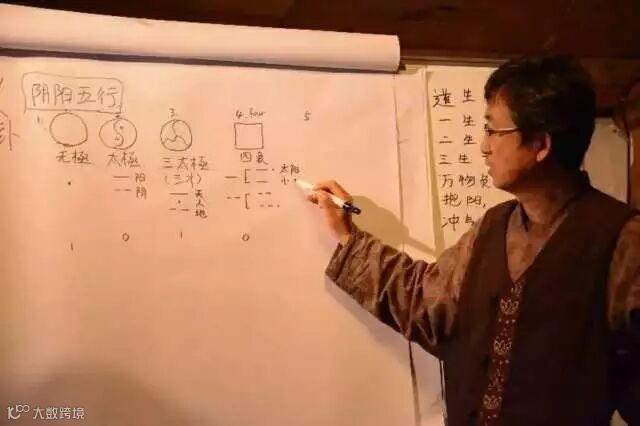 阴阳五行
1. 2. 3. 4. four 5
无極 太極 三太極 四象
(三才)
阳
阴
天
人
地
太阳
小
1 0 1 0
道生
一生
二生
三生
万物负
抱阳,
冲
大数跨境